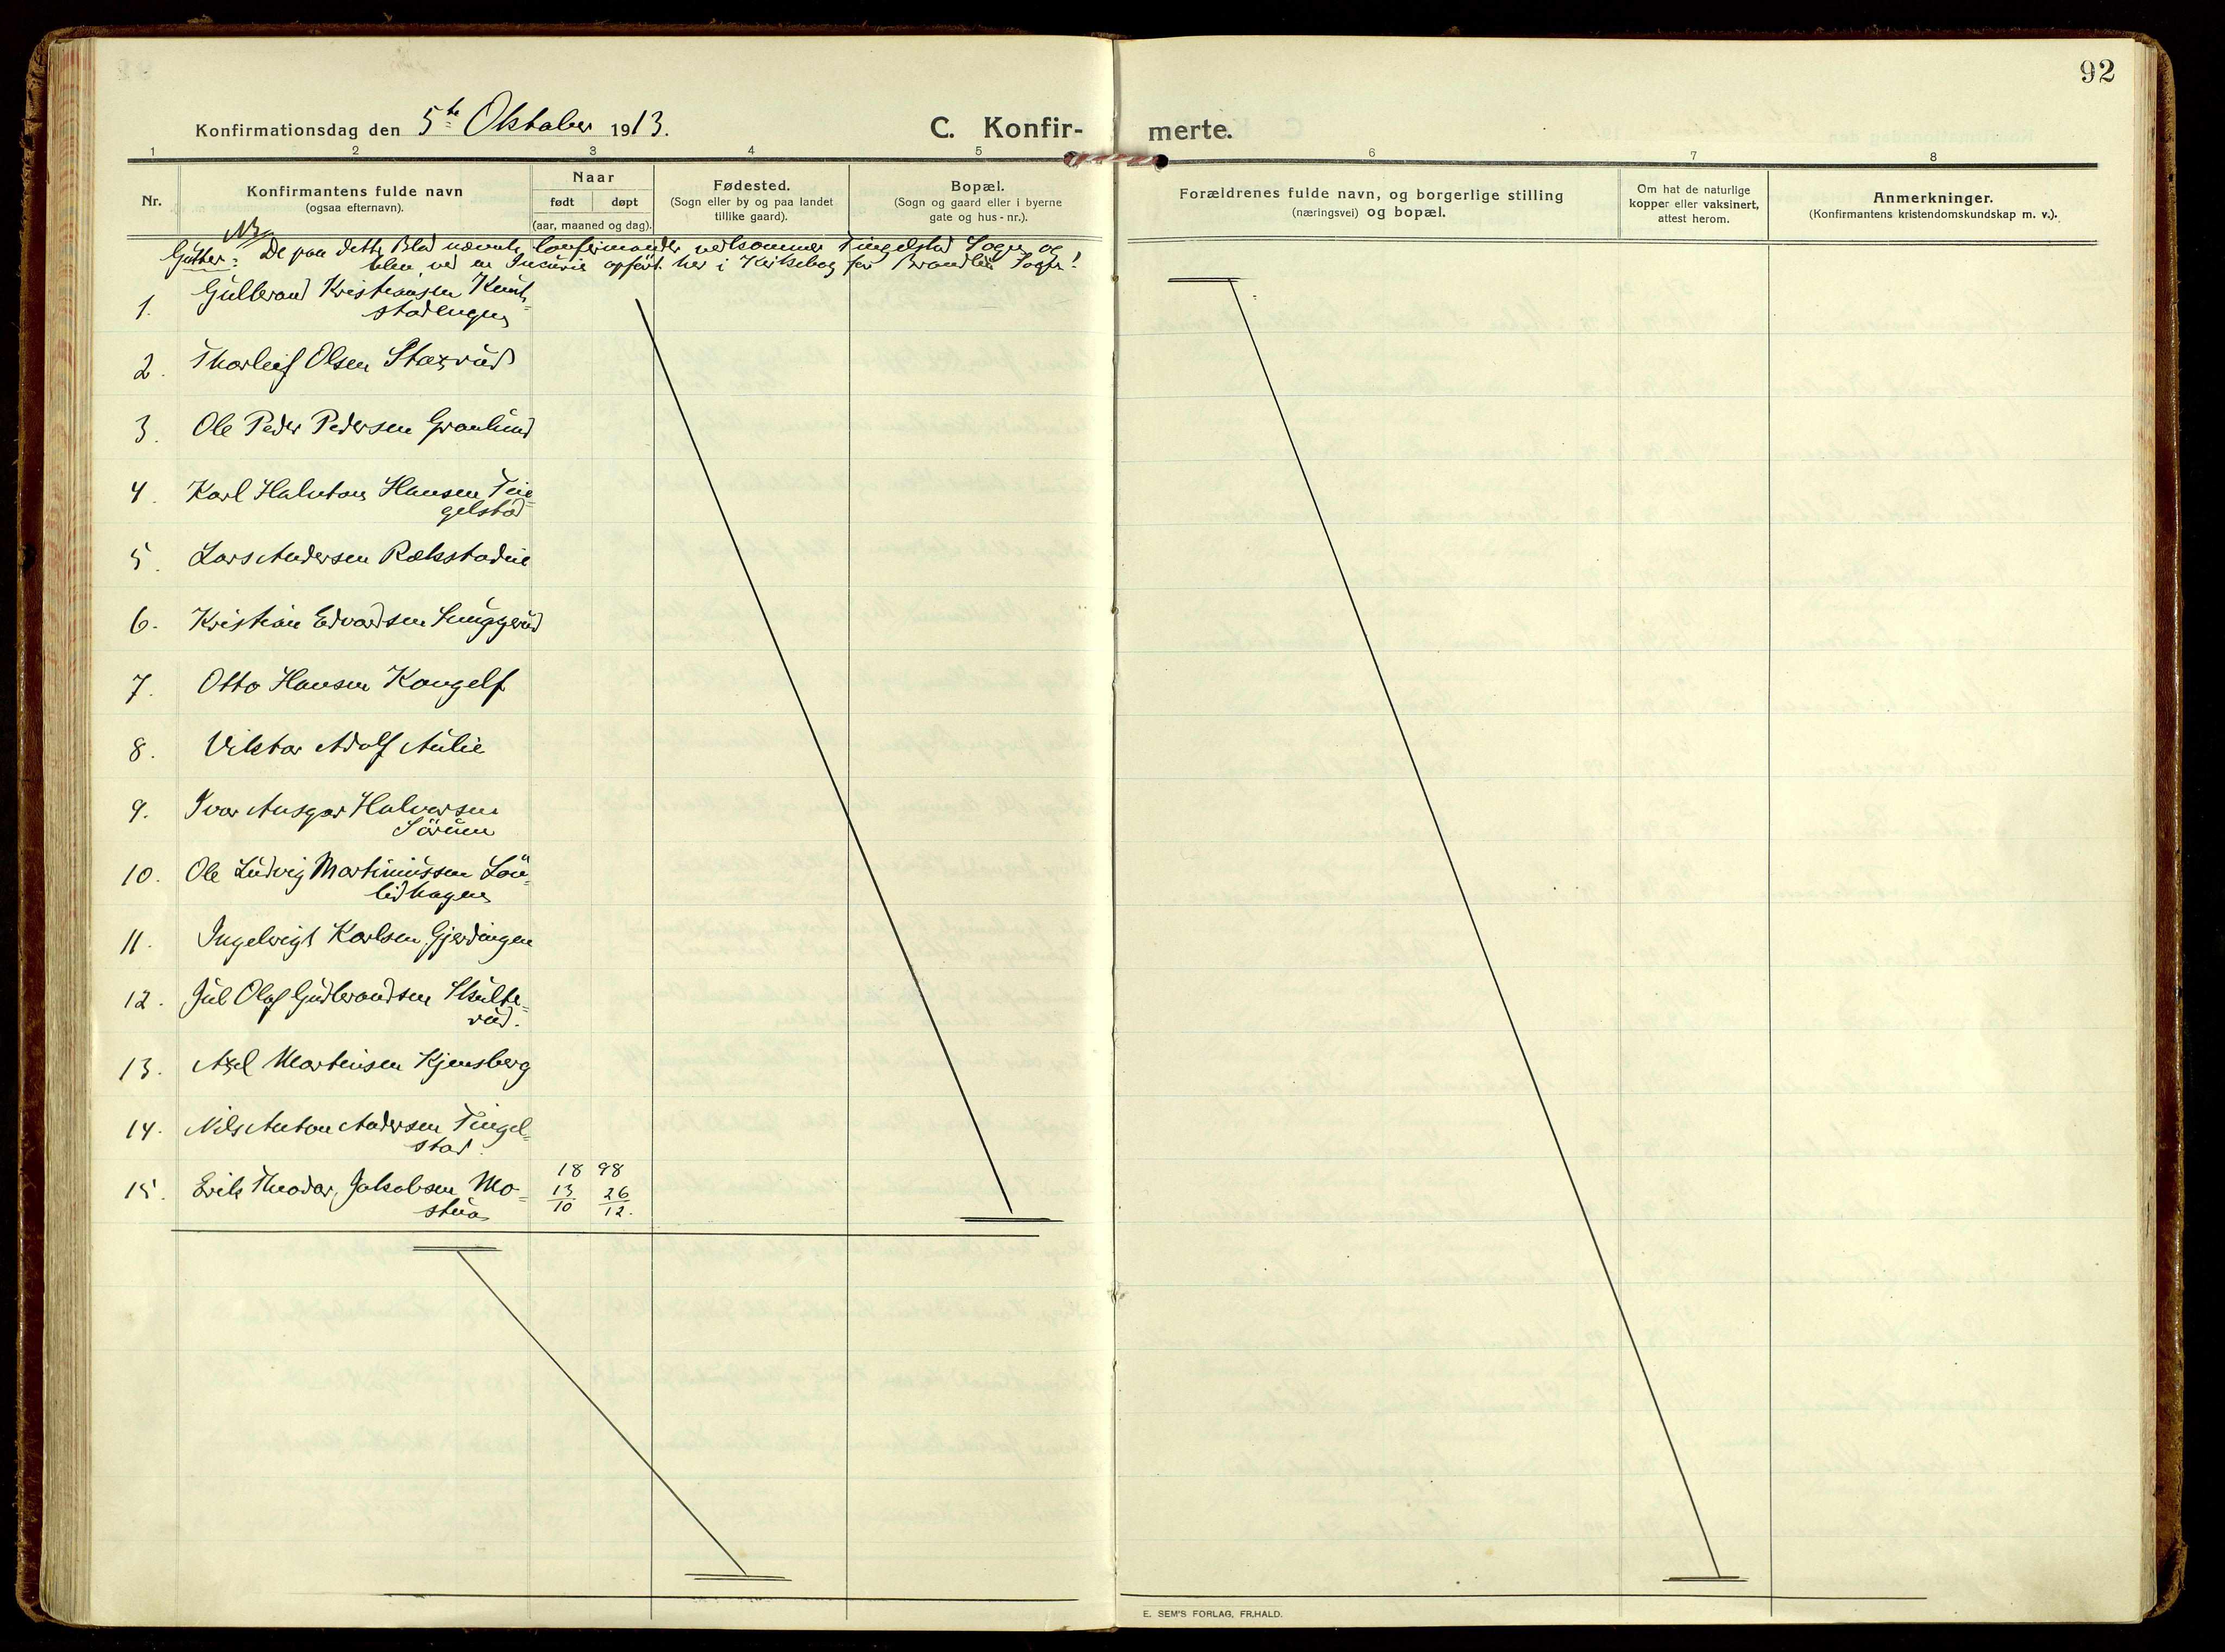 92
Konfirmationsdag den 5te Oktober 1913.
C. Konfir- merte.
1 2 3 4 5 6 7 8
Nr.
Konfirmantens fulde navn
(ogsaa efternavn).
Naar
født døpt
(aar, maaned og dag).
Fødested.
(Sogn eller by og paa landet
tillike gaard).
Bopæl.
(Sogn og gaard eller i byerne
gate og hus-nr.).
Forældrenes fulde navn, og borgerlige stilling
(næringsvei) og bopæl.
Om hat de naturlige
kopper eller vaksinert,
attest herom.
Anmerkninger.
(Konfirmantens kristendomskundskap m. v.).
NB
Gutter: De paa dette Blad nævnte Confirmander vedkommer Tingelstad Sogn og
blev ved en Incurie opført her i Kirkebog for Brandbu Sogn!
1. Gulbrand Kristiansen
stadengen
2. Thorleif Olsen Staxrud
3. Ole Peder Pedersen Granlund
4. Karl Halvton Hansen Tin=
gelstad
5. Lars Andersen Rækstadlie
6. Kristian Edvardsen
7. Otto Hansen Kongelf
8. Viktor Adolf Aulie
9. Ivar Ansgar Halvorsen
Sörum
10. Ole Ludvig Martiniussen Lön=
lidhagen
11. Ingebrigt Karlsen Gjerdingen
12. Jul Olaf Gudbrandsen Skute=
rud.
13. Axel Martinsen Kjensberg
14. Nils Anton Andersen Tingel=
stad.
15. Erik Theodor Jakobsen Mo=
stua
18 98
13/10 26/12.
E. SEM'S FORLAG, FR.HALD.